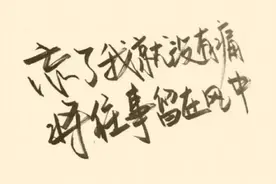 忘了我就没有痛
将往事留在风中